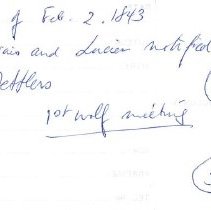 of Feb. 2. 1843
and Lucien notified
Settlers
1st wolf meeting